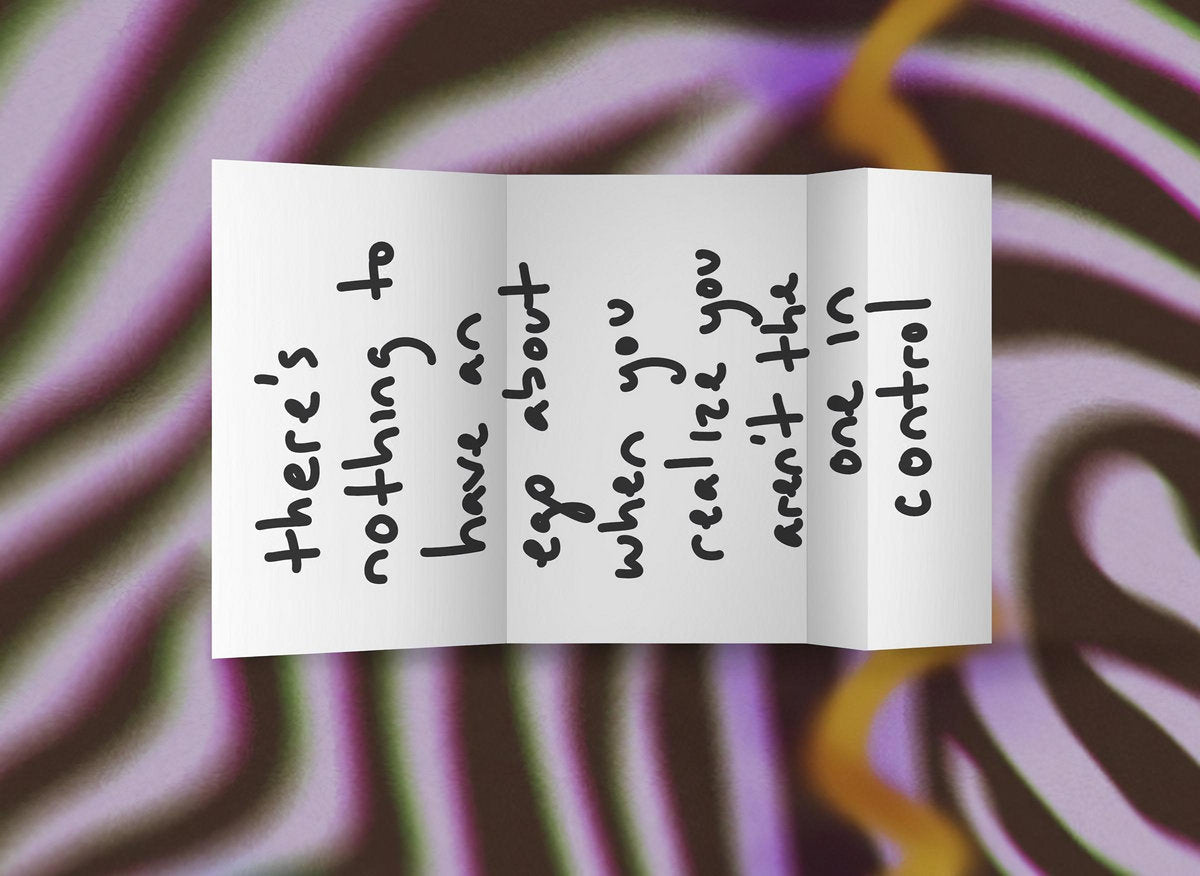 there's
nothing to
have an
ego about
when you
realize you
aren't the
one in
control